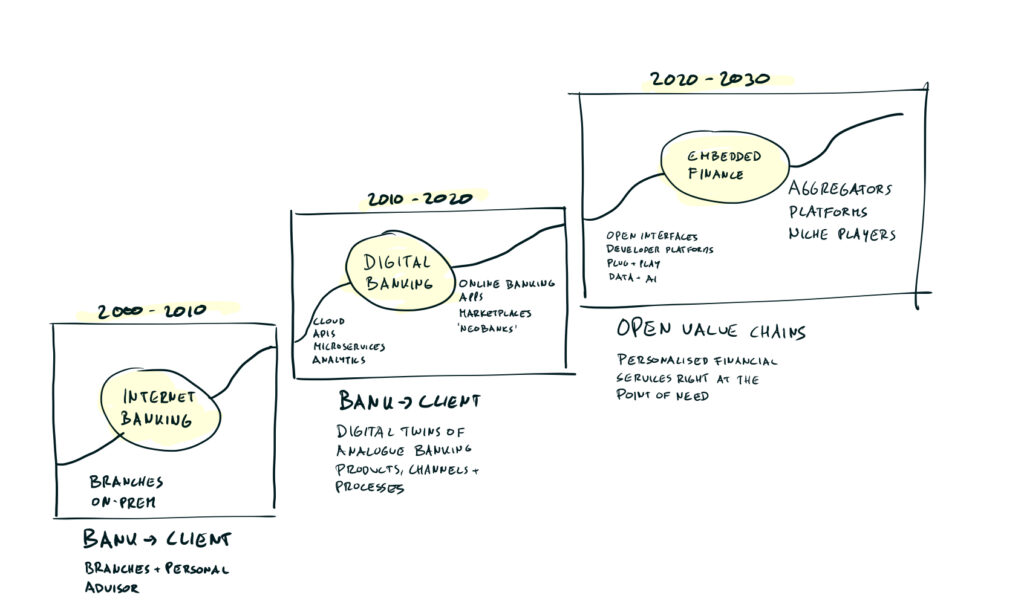 2000 - 2010
INTERNET
BANKING
BRANCHES
ON-PREM
BANK → CLIENT
BRANCHES + PERSONAL
ADVISOR
2010 - 2020
DIGITAL
BANKING
CLOUD
APIS
MICROSERVICES
ANALYTICS
ONLINE BANKING
APPS
MARKETPLACES
'NEOBANKS'
BANK → CLIENT
DIGITAL TWINS OF
ANALOGUE BANKING
PRODUCTS, CHANNELS +
PROCESSES
2020 - 2030
EMBEDDED
FINANCE
OPEN INTERFACES
DEVELOPER PLATFORMS
PLUG + PLAY
DATA + AI
AGGREGATORS
PLATFORMS
NICHE PLAYERS
OPEN VALUE CHAINS
PERSONALISED FINANCIAL
SERVICES RIGHT AT THE
POINT OF NEED